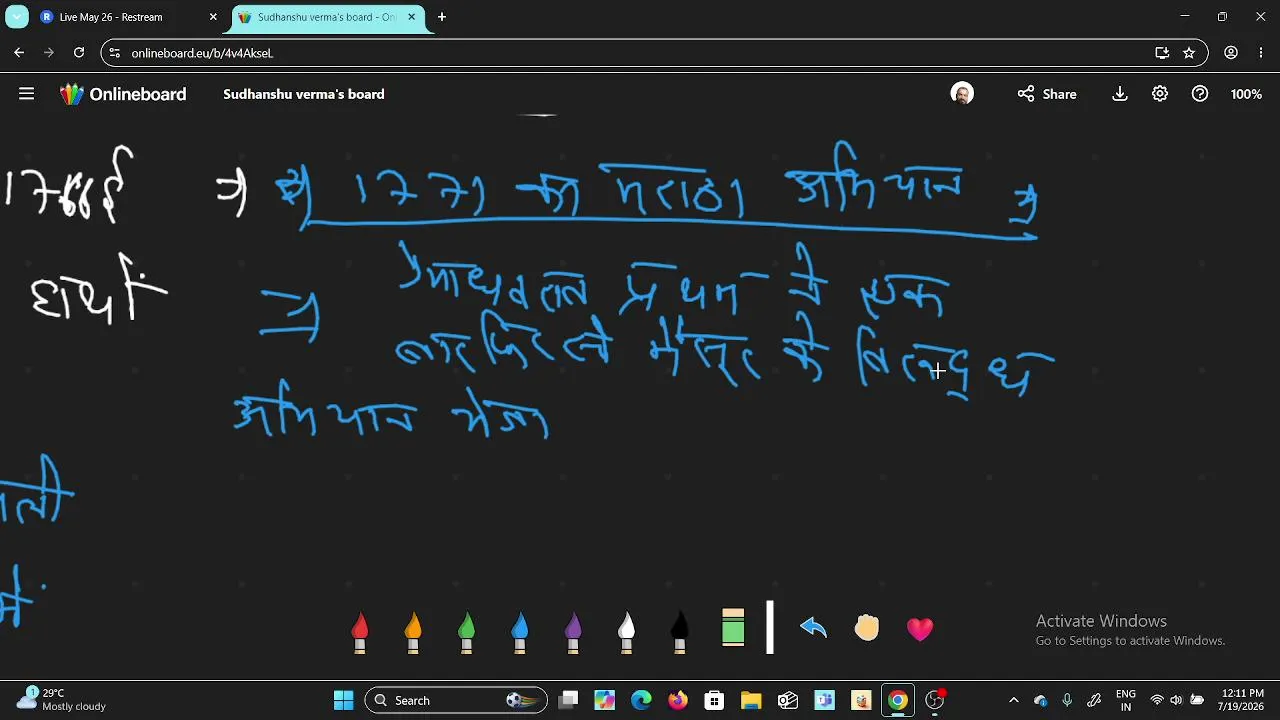 Live May 26 - Restream
Sudhanshu verma's board - On
onlineboard.eu/b/4v4AkseL
Onlineboard
Sudhanshu verma's board
Share
100%
⇒ 1771 का मराठा अभियान ⇒
⇒ माधवराव प्रथम ने एक
बार फिर से मैसूर के विरुद्ध
अभियान भेजा
में
Activate Windows
Go to Settings to activate Windows.
1
29°C
Mostly cloudy
Search
ENG
IN
12:11 PM
7/19/2026